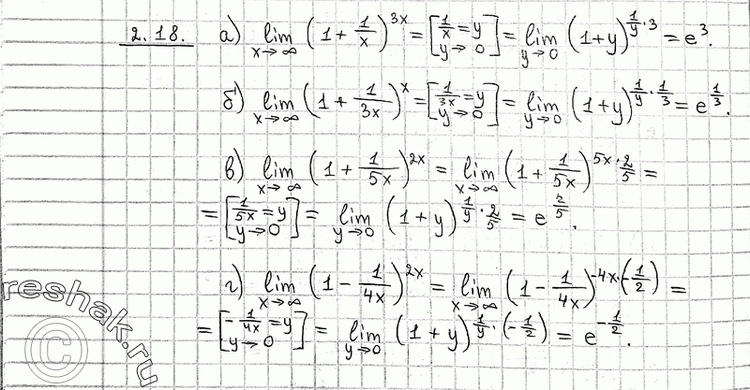 2.18. а) lim x→∞ (1 + 1/x)^3x = [1/x = y, y→0] = lim y→0 (1+y)^(1/y · 3) = e^3.
б) lim x→∞ (1 + 1/3x)^x = [1/3x = y, y→0] = lim y→0 (1+y)^(1/y · 1/3) = e^(1/3).
в) lim x→∞ (1 + 1/5x)^2x = lim x→∞ (1 + 1/5x)^(5x · 2/5) =
= [1/5x = y, y→0] = lim y→0 (1+y)^(1/y · 2/5) = e^(2/5).
г) lim x→∞ (1 - 1/4x)^2x = lim x→∞ (1 - 1/4x)^(-4x·(-1/2)) =
= [-1/4x = y, y→0] = lim y→0 (1+y)^(1/y · (-1/2)) = e^(-1/2).
reshak.ru
©